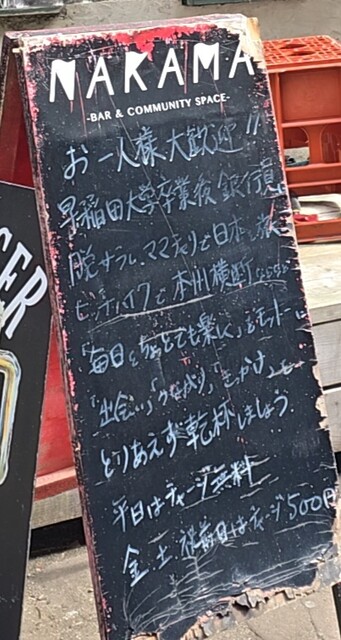 NAKAMA
-BAR & COMMUNITY SPACE-
お一人様大歓迎!!
早稲田大学卒業後 銀行員
脱サラし、ママチャリで日本
ヒッチハイクで本州横断
「毎日をちょっとでも楽しく」をモットーに
「出会い」「つながり」
とりあえず乾杯しましょう.
平日はチャージ無料
金、土 祝前日はチャージ500円